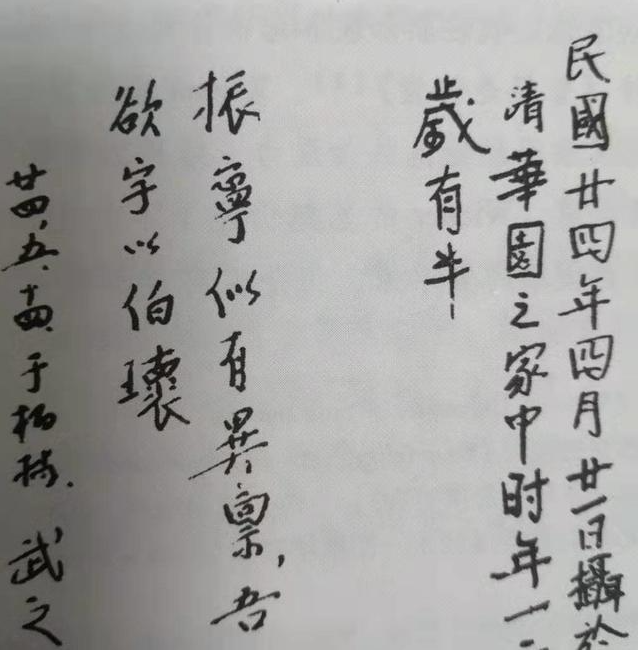 民國廿四年四月廿一日攝於
清華園之家中时年
歲有半
振寧似有異禀,吾
欲字以伯瓌
廿四,五,十四于柏林. 武之